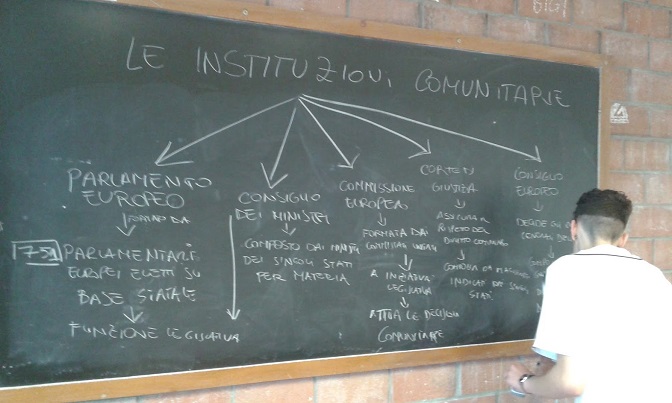 LE INSTITUZIONI COMUNITARIE
PARLAMENTO
EUROPEO
FORMATO DA
751 PARLAMENTARI
EUROPEI ELETTI SU
BASE STATALE
FUNZIONE LEGISLATIVA
CONSIGLIO
DEI MINISTRI
COMPOSTO DAI
DEI SINGOLI STATI
PER MATERIA
COMMISSIONE
EUROPEA
FORMATA DAI
A INIZIATIVA
LEGISLATIVA
ATTUA LE DECISIONI
COMUNITARIE
CORTE DI
GIUSTIZIA
ASSICURA IL
RISPETTO DEL
DIRITTO COMUNITARIO
INDICATI DAI SINGOLI
STATI
CONSIGLIO
EUROPEO
DECIDE GLI